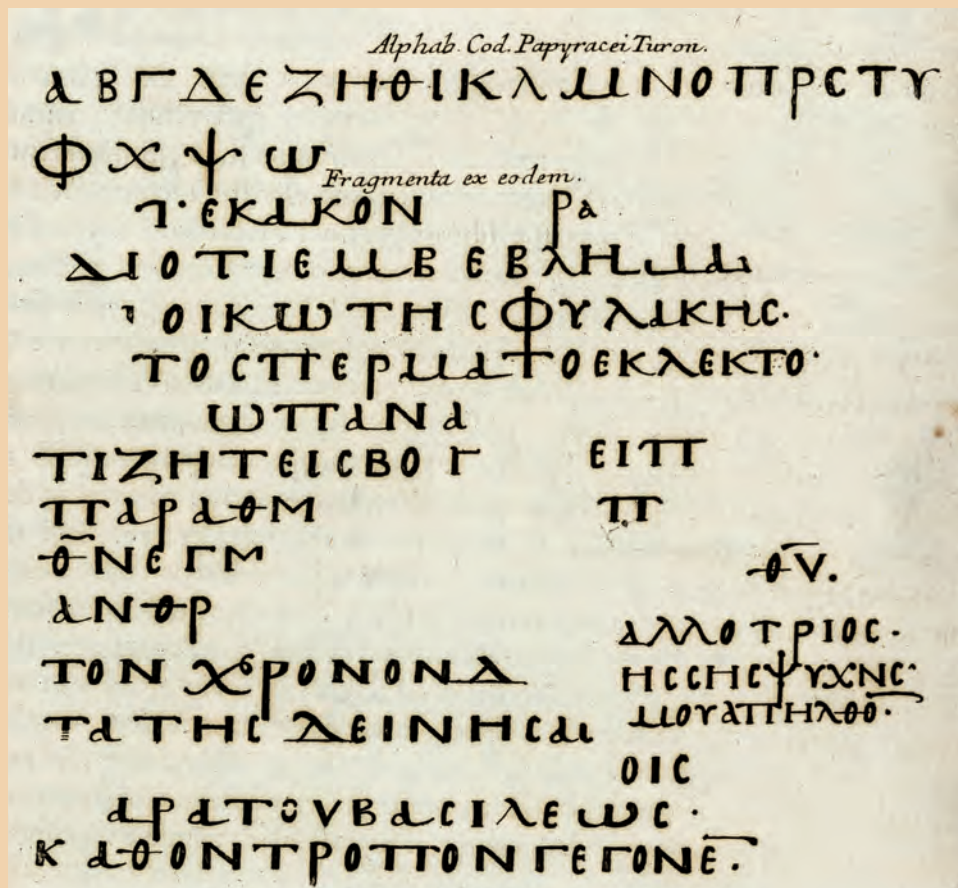 Alphab. Cod. Papyracei Turon.
Α Β Γ Δ Ε Ζ Η Θ Ι Κ Λ Μ Ν Ο Π Ρ Ϲ Τ Υ
Φ Χ Ψ Ω
Fragmenta ex eodem.
ΕΚΑΚΟΝ ΡΑ
ΔΙΟΤΙΕΜΒΕΒΛΗΜΑΙ
ΟΙΚΩΤΗϹΦΥΛΑΚΗϹ·
ΤΟϹΠΕΡΜΑΤΟΕΚΛΕΚΤΟ·
ΩΠΑΝΑ
ΤΙΖΗΤΕΙϹΒΟΓ ΕΙΠΠ
ΠΑΡΑΘΜ Π
Θ͂ΝΕΓΜ
Θ̅V.
ΑΝΘΡ
ΑΛΛΟΤΡΙΟϹ·
ΤΟΝΧΡΟΝΟΝΔ
ΗϹϹΗϹΨΥΧΝϹ·
ΤΑΤΗϹΔΕΙΝΗϹΑΙ
ΜΟΥΑΠΗΛΘΟ̅·
ΟΙϹ
ΑΡΑΤΟVΒΑϹΙΛΕΩϹ·
ΚΑΘΟΝΤΡΟΠΟΝΓΕΓΟΝΕ̅.